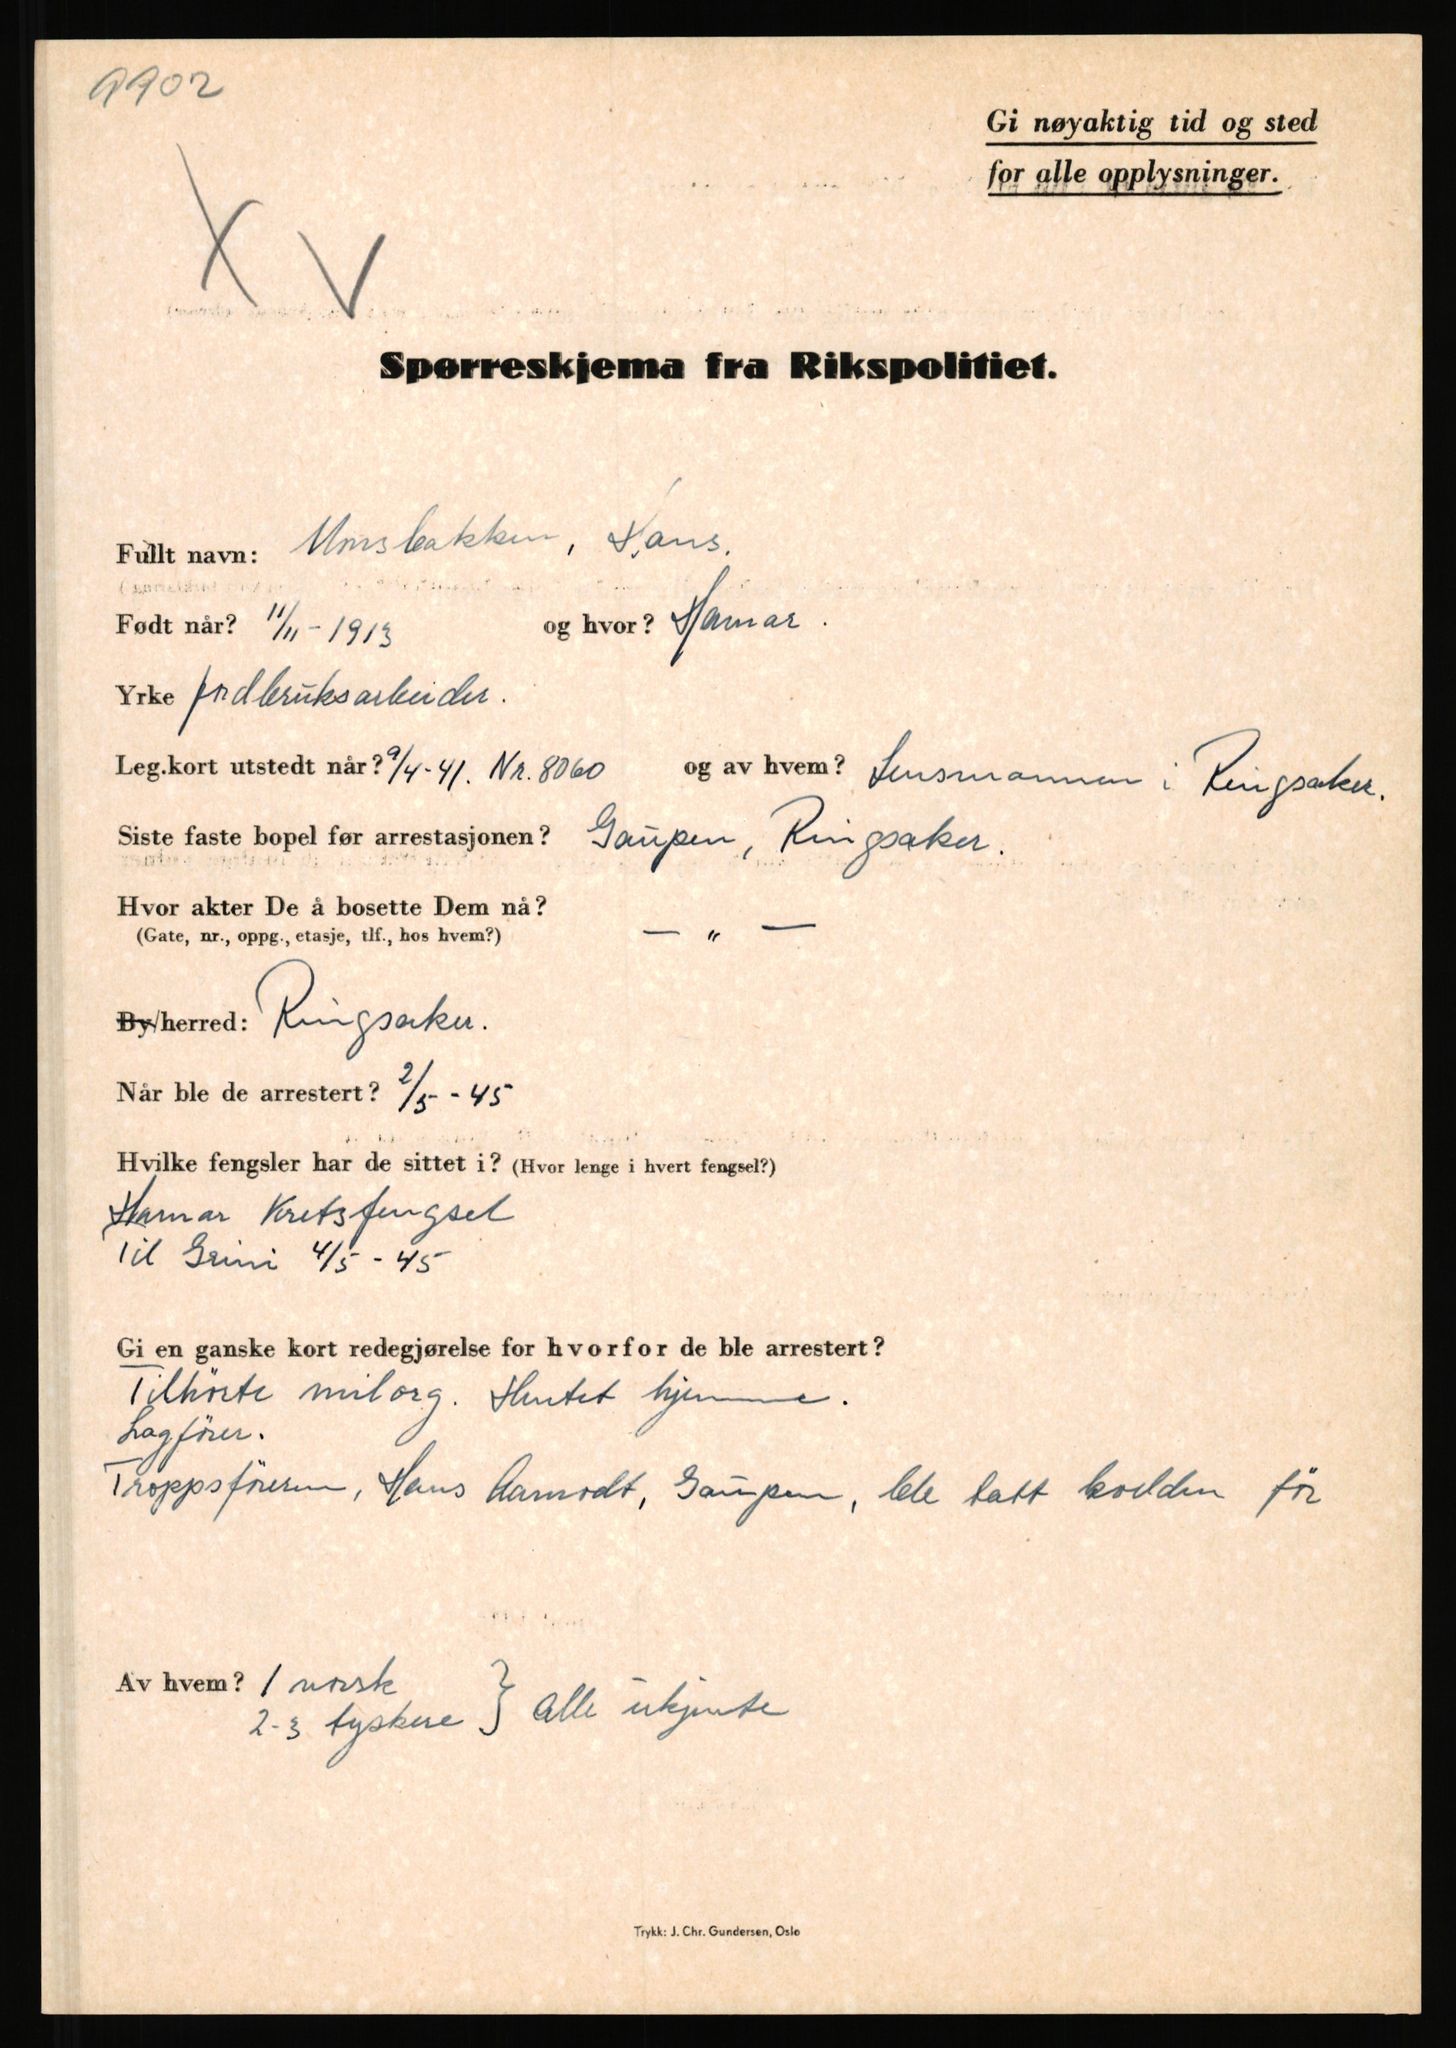 9902
Gi nøyaktig tid og sted
for alle opplysninger.
X V
Spørreskjema fra Rikspolitiet.
Fullt navn: Monsbakken, Hans.
Født når? 11/11 - 1913 og hvor? Hamar.
Yrke jordbruksarbeider.
Leg.kort utstedt når? 9/4-41. Nr. 8060 og av hvem? Lensmannen i Ringsaker.
Siste faste bopel før arrestasjonen? Gaupen, Ringsaker.
Hvor akter De å bosette Dem nå?
(Gate, nr., oppg., etasje, tlf., hos hvem?) — " —
By/herred: Ringsaker.
Når ble de arrestert? 2/5 - 45
Hvilke fengsler har de sittet i? (Hvor lenge i hvert fengsel?)
Hamar Kretsfengsel
Til Grini 4/5 - 45
Gi en ganske kort redegjørelse for hvorfor de ble arrestert?
Tilhörte milorg. Hentet hjemme.
Lagförer.
Troppsföreren, Hans Aamodt, Gaupen, ble tatt kvelden för
Av hvem? 1 norsk
2-3 tyskere } alle ukjente
Trykk: J. Chr. Gundersen, Oslo